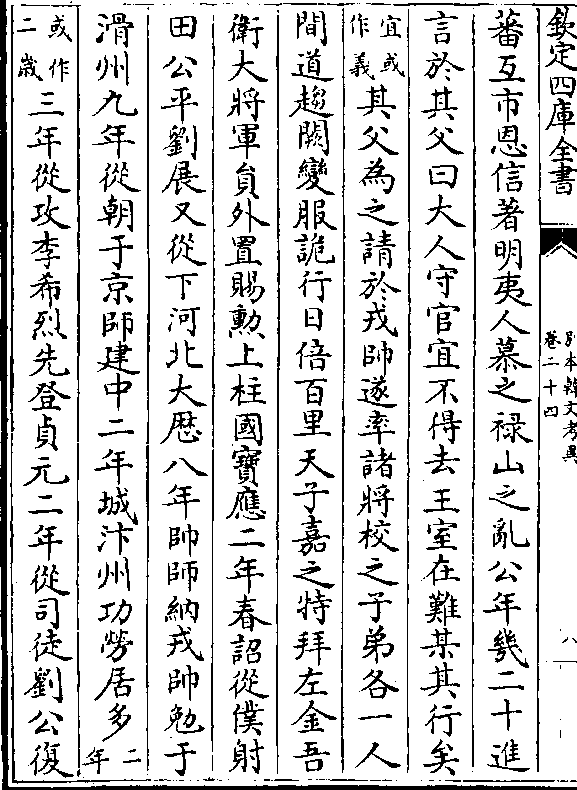 欽定四庫全書
別本韓文考異
卷二十四
八
蕃互市恩信著明夷人慕之禄山之亂公年幾二十進
言於其父曰大人守官宜不得去王室在難某其行矣
宜或作義其父為之請於戎帥遂率諸將校之子弟各一人
間道趨闕變服詭行日倍百里天子嘉之特拜左金吾
衛大將軍員外置賜勲上柱國寶應二年春詔從僕射
田公平劉展又從下河北大厯八年帥師納戎帥勉于
滑州九年從朝于京師建中二年城汴州功勞居多二年
或作二歲三年從攻李希烈先登貞元二年從司徒劉公復